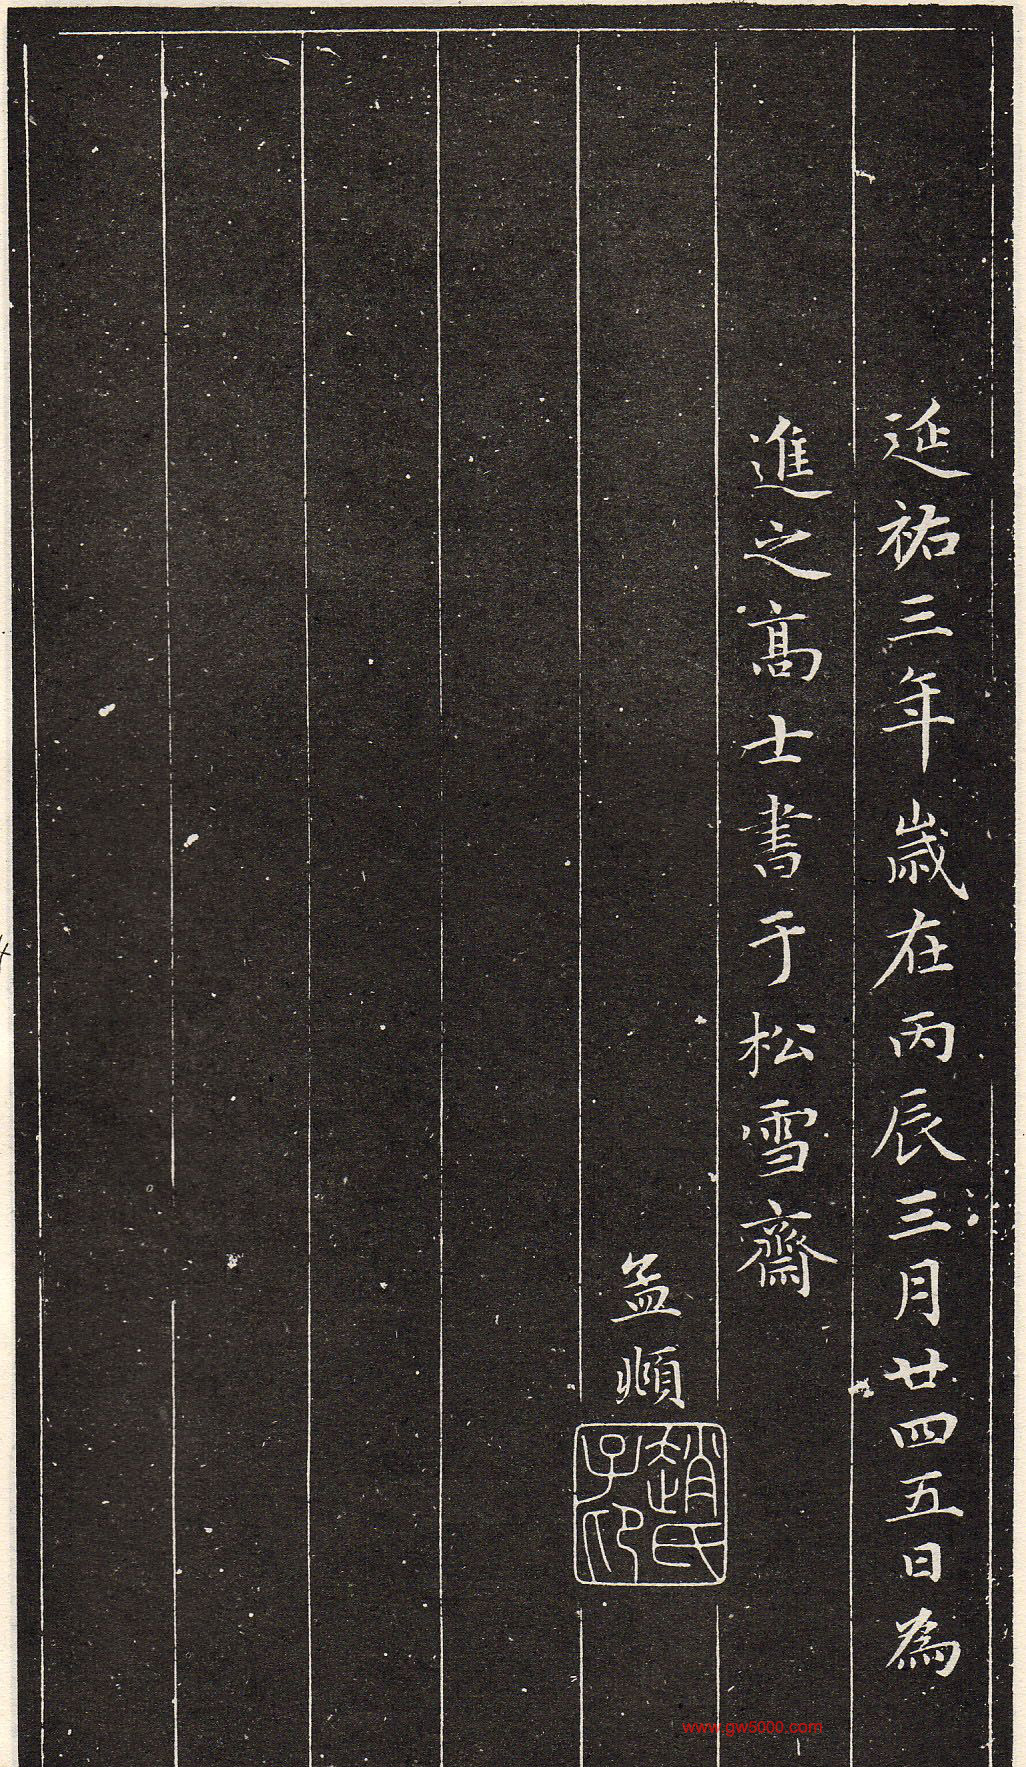 延祐三年歲在丙辰三月廿四五日為
進之高士書于松雪齋
孟頫
趙氏
子印
www.gw5000.com